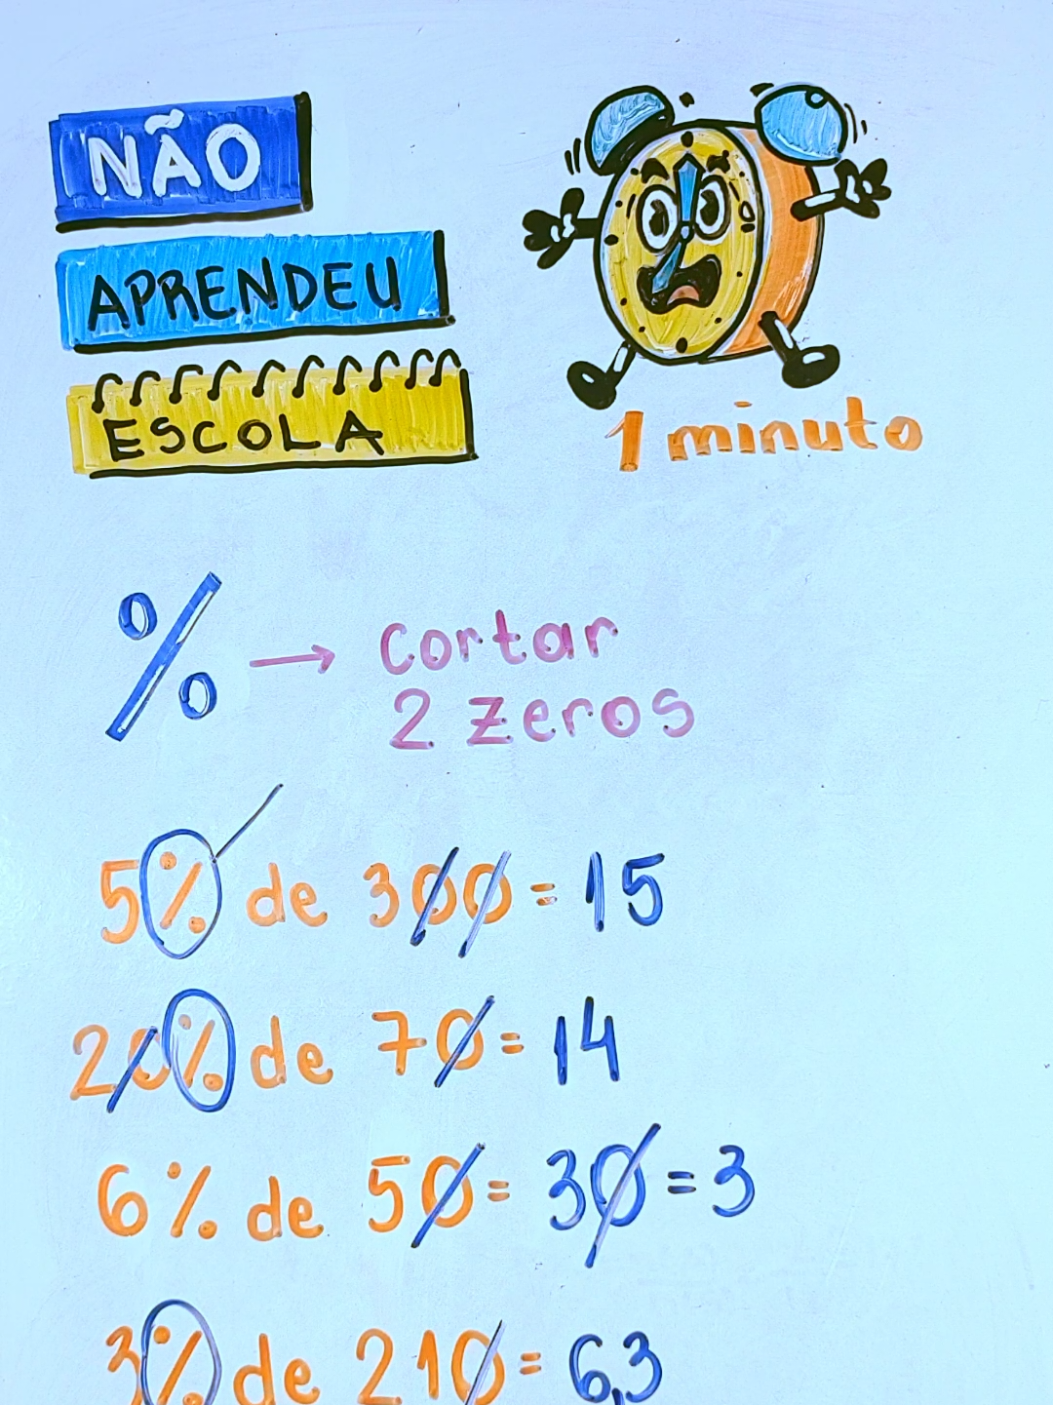 NÃO
APRENDEU
ESCOLA
1 minuto
% → cortar
2 zeros
5% de 300 = 15
20% de 70 = 14
6% de 50 = 30 = 3
3% de 210 = 6,3